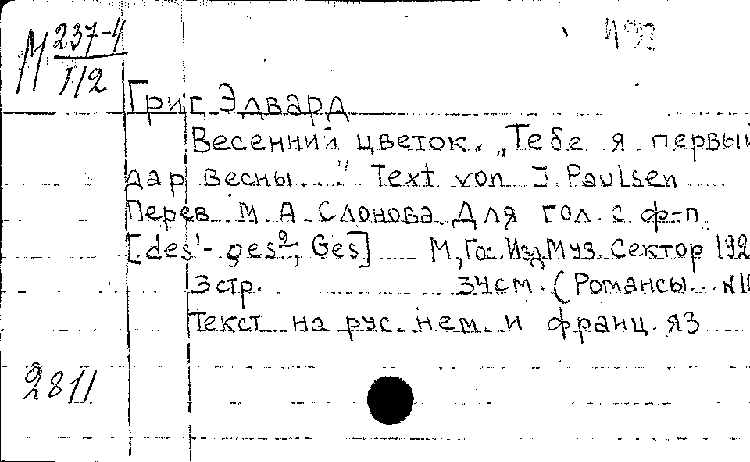 М 237-4
I/2
492
Григ Эдвард
Весенний цветок. „Тебе я первый
дар весны ..." Text von J. Paulsen
Перев М. А. Слонова Для гол. с ф-п.
[des¹- ges², Ges] М, Гос. Изд, Муз. Сектор 192
3 стр. 34 см. (Романсы
Текст на рус. нем. и франц. яз
2811